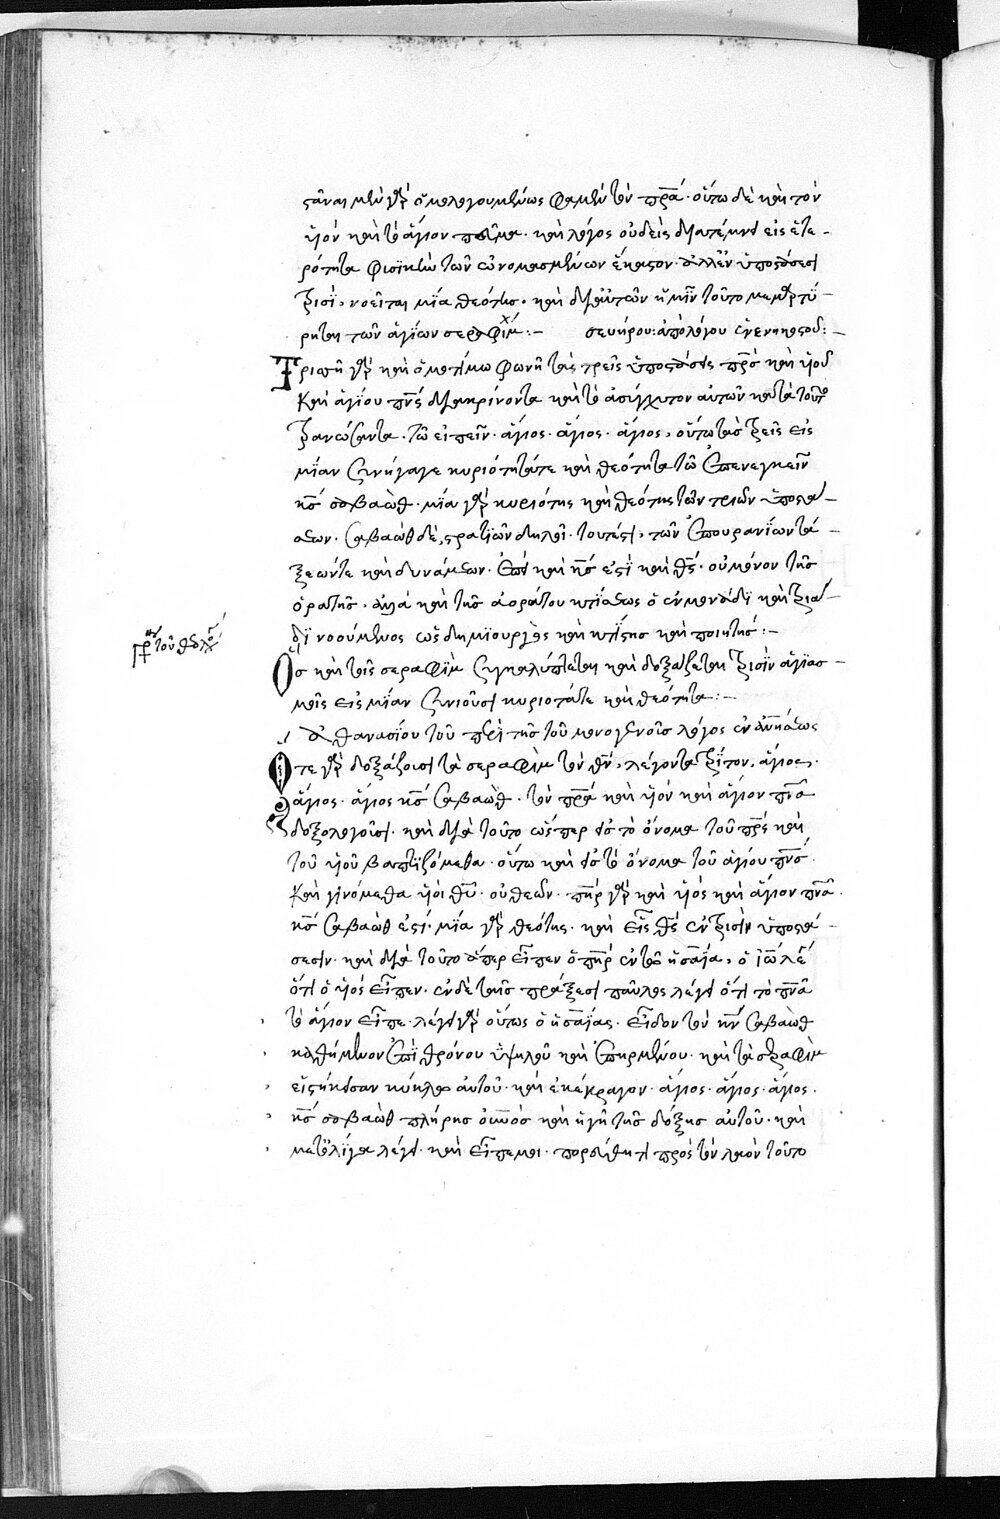 στᾶναι μὲν γὰρ ὁμολογουμένως φαμὲν τὸν πρα· οὕτω δὲ καὶ τὸν
υἱὸν καὶ τὸ ἅγιον πνεῦμα· καὶ λόγος οὐδεὶς διατέμνει εἰς ἑτε-
ρότητα φυσικὴν τῶν ὠνομασμένων ἕκαστον· ἀλλ' ἐν ὑποστάσεσι
τρισὶ, νοεῖται μία θεότης· καὶ δι' αὐτῶν ἡμῖν τοῦτο μεμαρτύ-
ρηται τῶν ἁγίων σεραφίμ:- σευήρου: ἀπὸ λόγου
Τριττῇ γὰρ καὶ ὁμοτίμω φωνῇ τὰς τρεῖς ὑποστάσεις πρς καὶ υἱοῦ
καὶ ἁγίου πνς διακρίνοντα καὶ τὸ ἀσύγχυτον αὐτῶν κατὰ τοῦτο
τρανώσαντα· τῶ εἰπεῖν· ἅγιος· ἅγιος· ἅγιος, οὕτω τὰς τρεῖς εἰς
μίαν συνήγαγε κυριότητά τε καὶ θεότητα τῶ ἐπενεγκεῖν
κς σαβαώθ· μία γὰρ κυριότης καὶ θεότης τῶν τριῶν ὑποστά-
σεων· σαβαὼθ δὲ, στρατιῶν δηλοῖ· τουτέστι, τῶν ἐπουρανίων τά-
ξεών τε καὶ δυνάμεων· ἐπεὶ καὶ κς ἐστὶ καὶ θς· οὐ μόνον τῆς
ὁρατῆς· ἀλλὰ καὶ τῆς ἀοράτου κτίσεως ὁ ἐν μονάδι καὶ τριά-
δι νοούμενος ὡς δημιουργὸς καὶ κτίστης καὶ ποιητής:-
Ὃς καὶ τοῖς σεραφὶμ συγκαλύπτεται καὶ δοξάζεται τρισὶν ἁγιασ-
μοῖς εἰς μίαν συνιοῦσι κυριότητά τε καὶ θεότητα:-
Ἀθανασίου τοῦ περὶ τῆς τοῦ μονογενοῦς λόγος ἐνανθρωπήσεως
Ὅτε γὰρ δοξάζουσι τὰ σεραφὶμ τὸν θν, λέγοντα τρίτον, ἅγιος·
ἅγιος· ἅγιος κς σαβαώθ· τὸν πρα καὶ υἱὸν καὶ ἅγιον πνα
δοξολογοῦσι· καὶ διὰ τοῦτο ὥσπερ εἰς τὸ ὄνομα τοῦ πρς καὶ
τοῦ υἱοῦ βαπτιζόμεθα· οὕτω καὶ εἰς τὸ ὄνομα τοῦ ἁγίου πνς·
καὶ γινόμεθα υἱοὶ θυ· οὐ θεῶν· πηρ γὰρ καὶ υἱὸς καὶ ἅγιον πνα·
κς σαβαώθ ἐστί· μία γὰρ θεότης· καὶ εἷς θς ἐν τρισὶν ὑποστά-
σεσιν· καὶ διὰ τοῦτο ἅπερ εἶπεν ὁ πηρ ἐν τῶ ἡσαΐα, ὁ ἰω λέγει
ὅτι ὁ υἱὸς εἶπεν· ἐν δὲ ταῖς πράξεσι παῦλος λέγει ὅτι τὸ πνα
τὸ ἅγιον εἶπε· λέγει γὰρ οὕτως ὁ ἡσαΐας· εἶδον τὸν κν σαβαώθ
καθήμενον ἐπὶ θρόνου ὑψηλοῦ καὶ ἐπηρμένου· καὶ τὰ σεραφὶμ
εἱστήκεισαν κύκλω αὐτοῦ· καὶ ἐκέκραγον· ἅγιος· ἅγιος· ἅγιος·
κς σαβαὼθ πλήρης ὁ οὐνος καὶ ἡ γῆ τῆς δόξης αὐτοῦ· καὶ
μετ' ὀλίγα λέγει· καὶ εἶπέ μοι· πορεύθητι πρὸς τὸν λαὸν τοῦτο